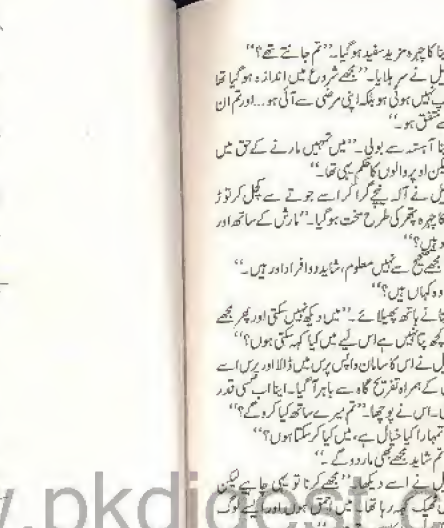 ینا کا چہرہ مزید سفید ہوگیا۔ ”تم جانتے تھے؟“
یل نے سر ہلایا۔ ”مجھے شروع میں اندازہ ہوگیا تھا
نہیں ہوئی ہو بلکہ اپنی مرضی سے آئی ہو... اور تم ان
متفق ہو۔“
نا آہستہ سے بولی۔ ”میں تمہیں مارنے کے حق میں
لیکن اوپر والوں کا حکم یہی تھا۔“
یل نے آلہ نیچے گرا کر اسے جوتے سے کچل کر توڑ
کا چہرہ پتھر کی طرح سخت ہوگیا۔ ”مارش کے ساتھ اور
د ہیں؟“
مجھے صحیح سے نہیں معلوم، شاید دو افراد اور ہیں۔“
وہ کہاں ہیں؟“
نے ہاتھ پھیلائے۔ ”میں دیکھ نہیں سکتی اور پھر مجھے
کچھ پتا نہیں ہے اس لیے میں کیا کہہ سکتی ہوں؟“
یل نے اس کا سامان واپس پرس میں ڈالا اور پرس اسے
کے ہمراہ تفریح گاہ سے باہر آگیا۔ اینا اب کسی قدر
۔ اس نے پوچھا۔ ”تم میرے ساتھ کیا کرو گے؟“
تمہارا کیا خیال ہے، میں کیا کر سکتا ہوں؟“
تم شاید مجھے بھی مار دو گے۔“
یل نے اسے دیکھا۔ ”مجھے کرنا تو یہی چاہیے لیکن
ٹھیک کہہ رہا تھا۔ میں احمق ہوں اور ایسے لوگ
.pkdigest.c